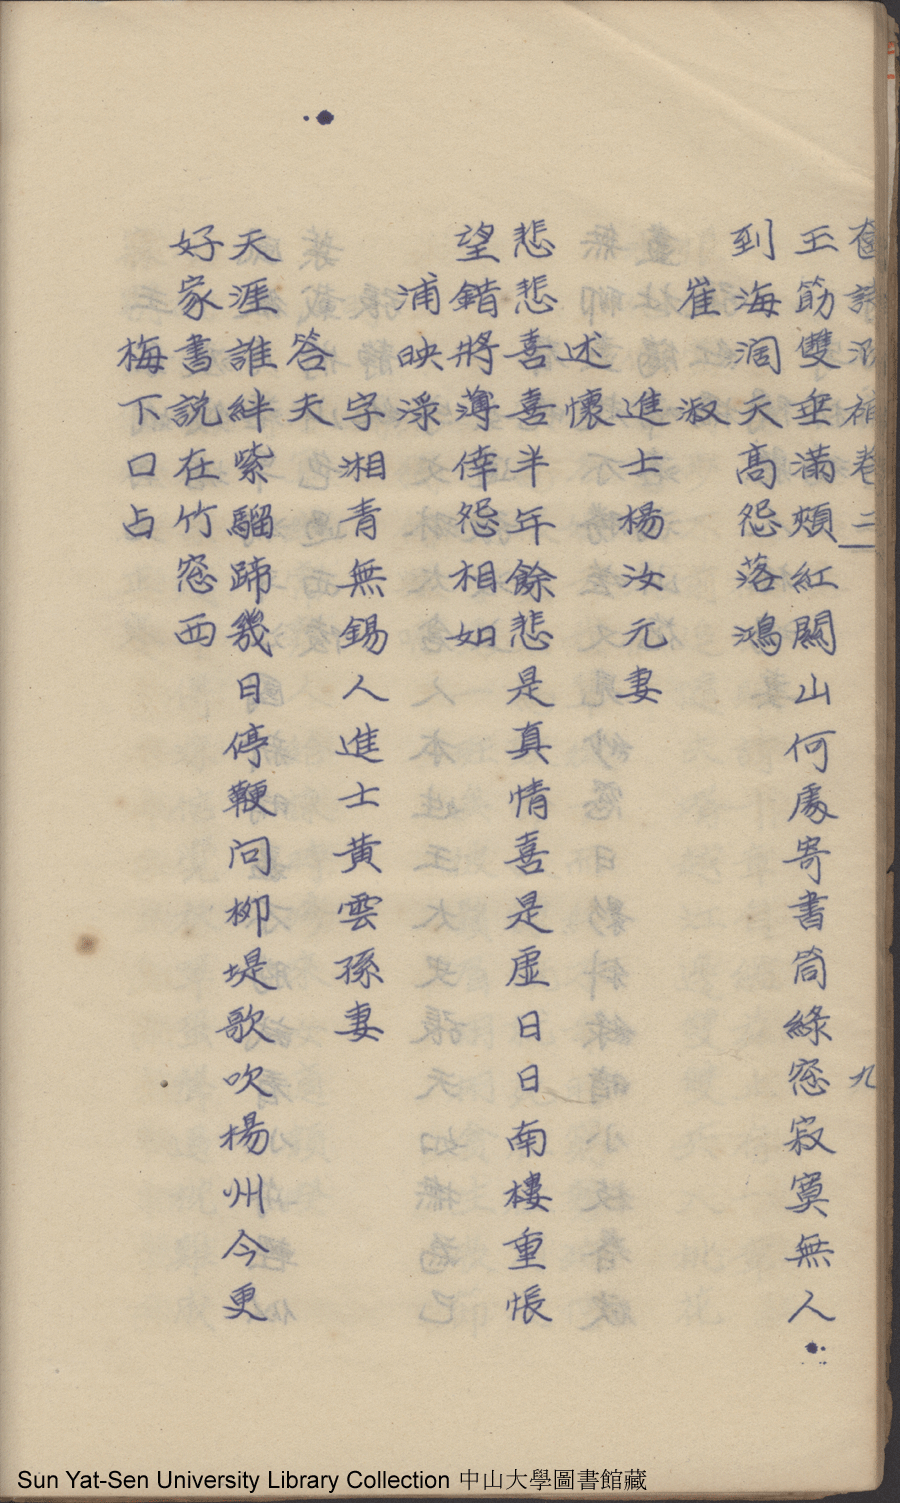 奩詩泐補卷二 九
玉筯雙垂滿頰紅關山何處寄書筒綠窓寂寞無人
到海濶天高怨落鴻
崔淑
進士楊汝元妻
述懷
悲悲喜喜半年餘悲是真情喜是虛日日南樓重悵
望錯將薄倖怨相如
浦映淥
字湘青無錫人進士黃雲孫妻
答夫
天涯誰絆紫騮蹄幾日停鞭問柳堤歌吹楊州今更
好家書說在竹窓西
梅下口占
Sun Yat-Sen University Library Collection 中山大學圖書館藏